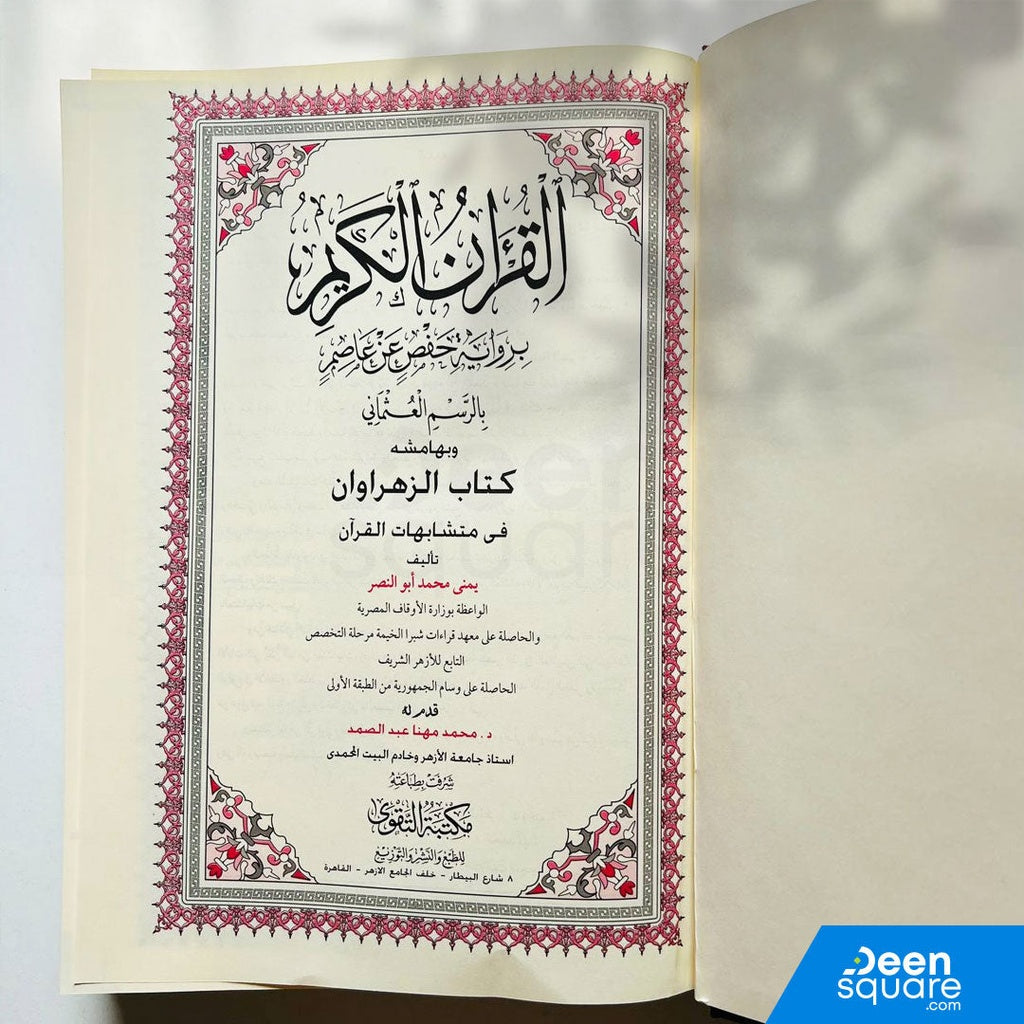 ٱلْقُرْءَانُ ٱلْكَرِيمِ
بِرِوَايَةِ حَفْصٍ عَنْ عَاصِمٍ
بِالرَّسْمِ الْعُثْمَانِي
وبهامشه
كتاب الزهراوان
فى متشابهات القرآن
تأليف
يمنى محمد أبو النصر
الواعظة بوزارة الأوقاف المصرية
والحاصلة على معهد قراءات شبرا الخيمة مرحلة التخصص
التابع للأزهر الشريف
الحاصلة على وسام الجمهورية من الطبقة الأولى
قدم له
د. محمد مهنا عبد الصمد
استاذ جامعة الأزهر وخادم البيت المحمدى
شَرُفَتْ بِطِبَاعَتِهِ
مَكتَبَةُ التَّقْوَى
لِلطَّبْعِ وَالنَّشْرِ وَالتَّوْزِيْعِ
٨ شارع البيطار - خلف الجامع الازهر - القاهرة
Deen
square
.com